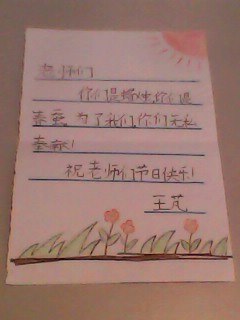 老师们
你们是蜡烛,你们是
春蚕,为了我们,你们无私
奉献!
祝老师们节日快乐!
王芃